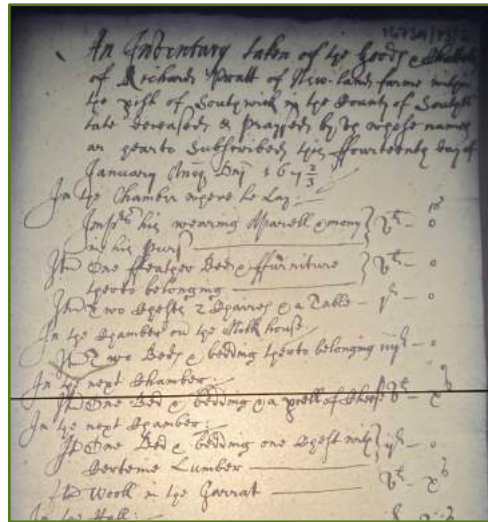 1673A/73/2
An Inventary taken of the Goods & Chattells
of Richard Pratt of New-lands farme within
the pish of Southwick in the County of Southt
late deceased & Prazzed by us whose names
ar hearto Subscribed this ffourteenth day of
January Ano Dni 167 2/3
In the Chamber where he Lay
Imprs his wearing Aparell & mony
in his Purs
It One ffeather Bed & ffurniture
therto belonging
It Two Chests 2 Chaires & a Table
In the Chamber on the Milk house
It Two Beds & bedding therto belonging
In the next Chamber
It One Bed & bedding & a prcell of Cheese
In the next Chamber
It One Bed & bedding one Chest with
Lumber
It Wooll in the Garrat
In the Hall